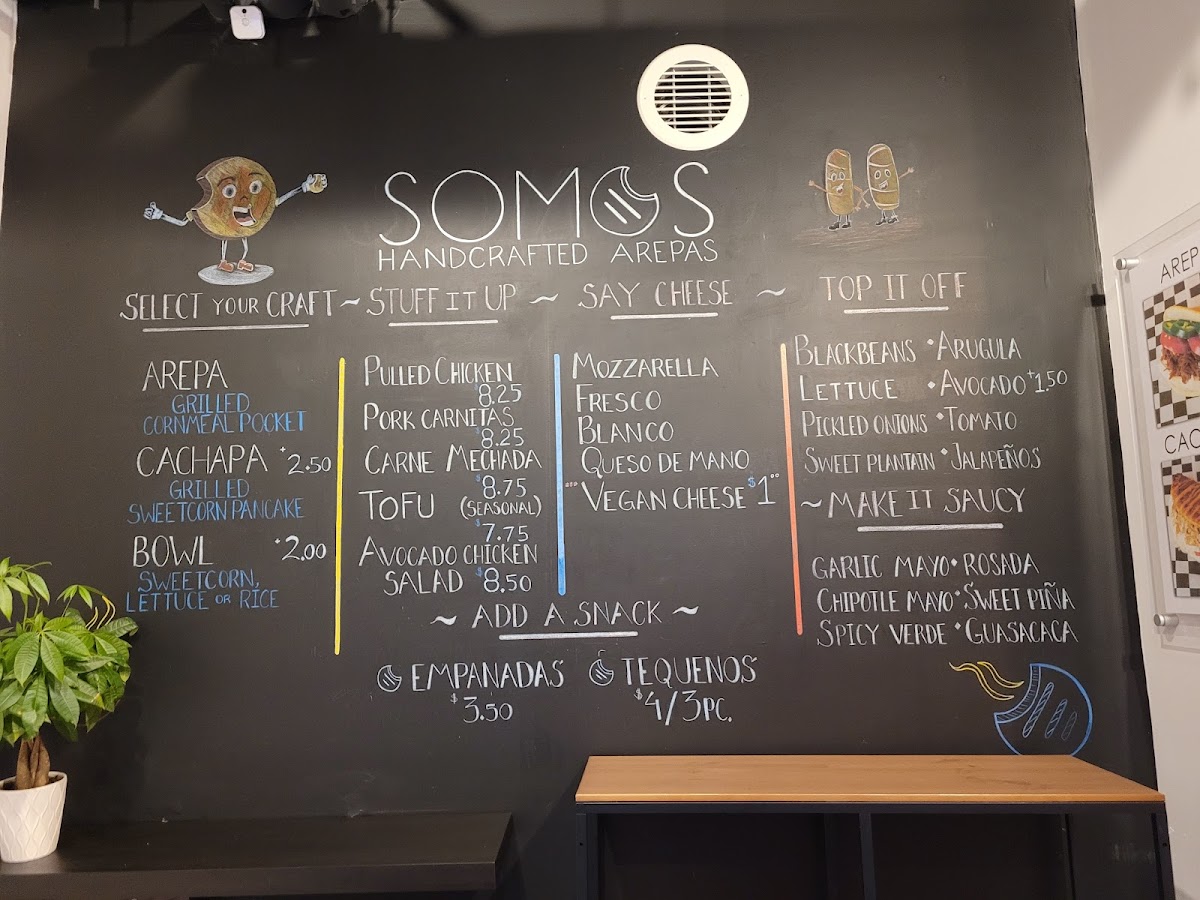 SOMOS
HANDCRAFTED AREPAS
SELECT YOUR CRAFT ~ STUFF IT UP ~ SAY CHEESE ~ TOP IT OFF
AREPA
GRILLED
CORNMEAL POCKET
CACHAPA +2.50
GRILLED
SWEETCORN PANCAKE
BOWL +2.00
SWEETCORN,
LETTUCE OR RICE
PULLED CHICKEN
$8.25
PORK CARNITAS
$8.25
CARNE MECHADA
$8.75
TOFU (SEASONAL)
$7.75
AVOCADO CHICKEN
SALAD $8.50
MOZZARELLA
FRESCO
BLANCO
QUESO DE MANO
VEGAN CHEESE $1.00
BLACKBEANS • ARUGULA
LETTUCE • AVOCADO +1.50
PICKLED ONIONS • TOMATO
SWEET PLANTAIN • JALAPEÑOS
~ MAKE IT SAUCY
GARLIC MAYO • ROSADA
CHIPOTLE MAYO • SWEET PIÑA
SPICY VERDE • GUASACACA
~ ADD A SNACK ~
EMPANADAS
$3.50
TEQUENOS
$4/3PC.
AREP
CAC